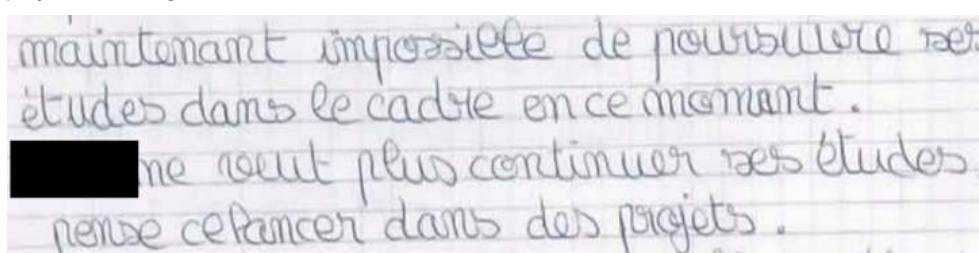 maintenant impossible de poursuivre ses
études dans le cadre en ce momant.
ne veut plus continuer ses études.
pense ce lancer dans des projets.